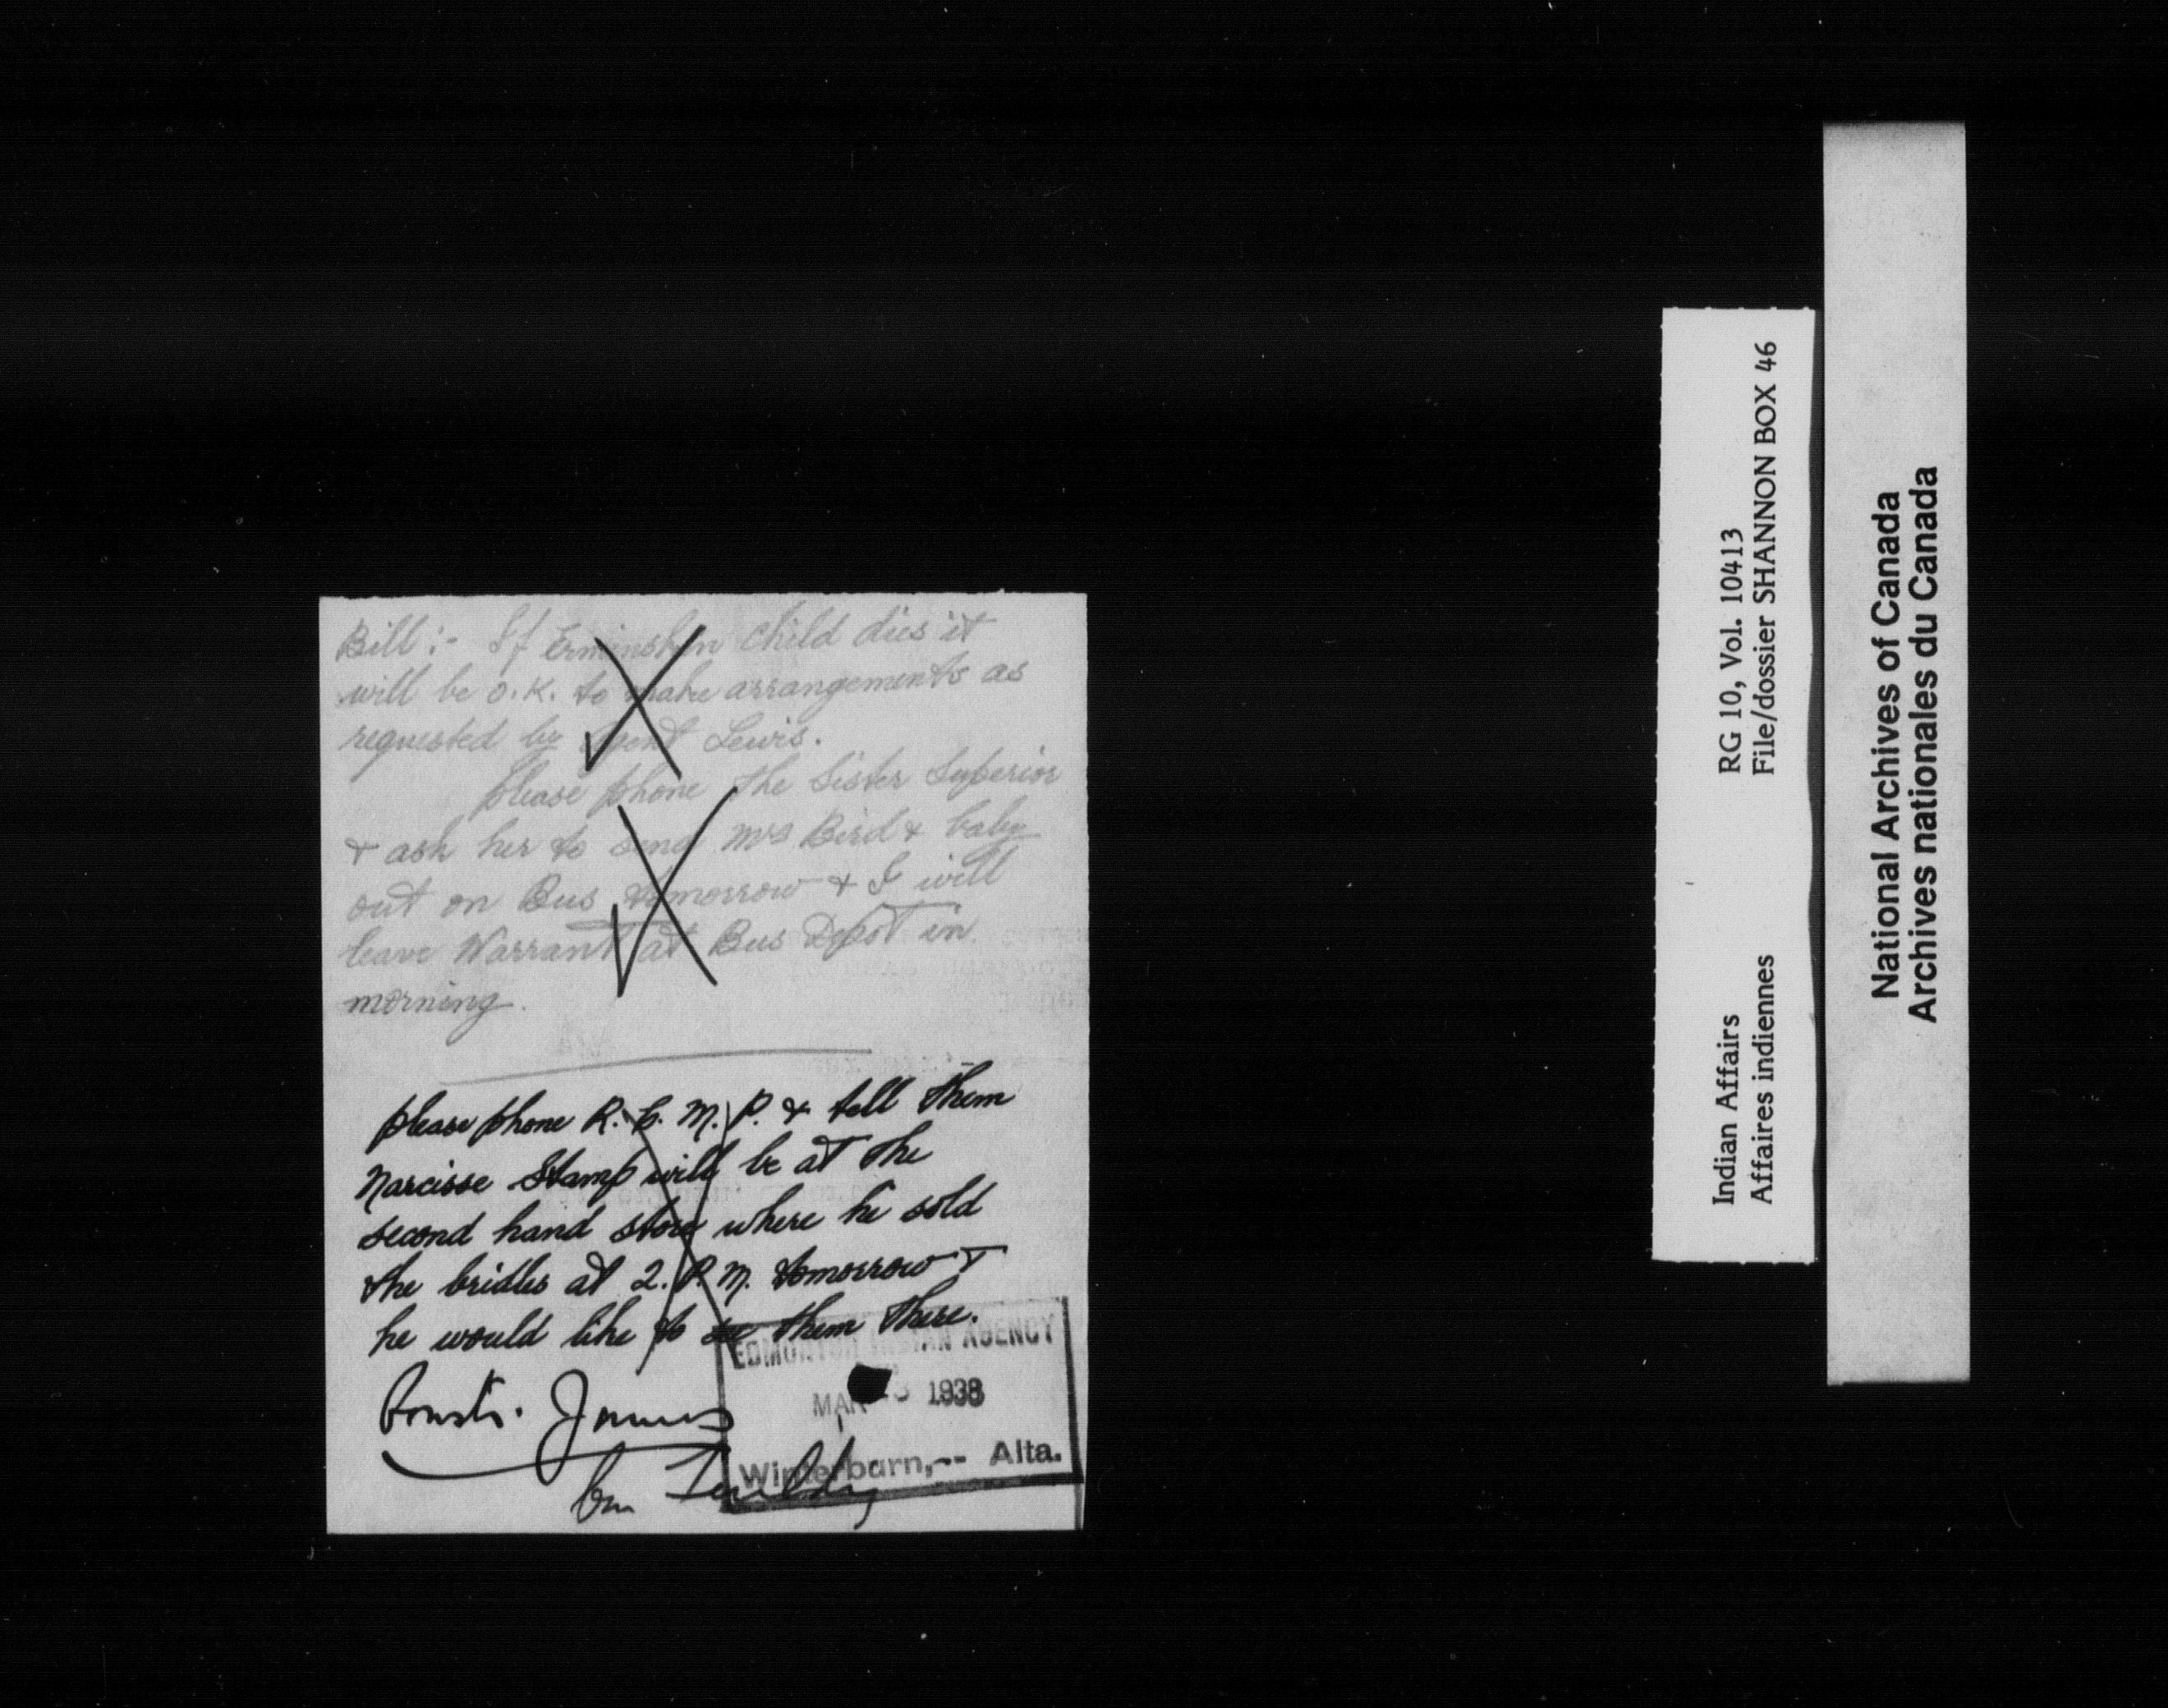 Bill :- If Erminskin child dies it
will be O.K. to make arrangements as
requested by Agent Lewis.
please phone the Sister Superior
& ask her to send Mrs Bird & baby
out on Bus tomorrow & I will
leave Warrant at Bus Depot in
morning.
please phone R.C.M.P. & tell them
Narcisse Stamp will be at the
second hand store where he sold
the bridles at 2. P.M. tomorrow &
he would like to see them there.
Const. James
EDMONTON INDIAN AGENCY
MAR 1938
Winterburn,-- Alta.
Indian Affairs
Affaires indiennes
RG 10, Vol. 10413
File/dossier SHANNON BOX 46
National Archives of Canada
Archives nationales du Canada